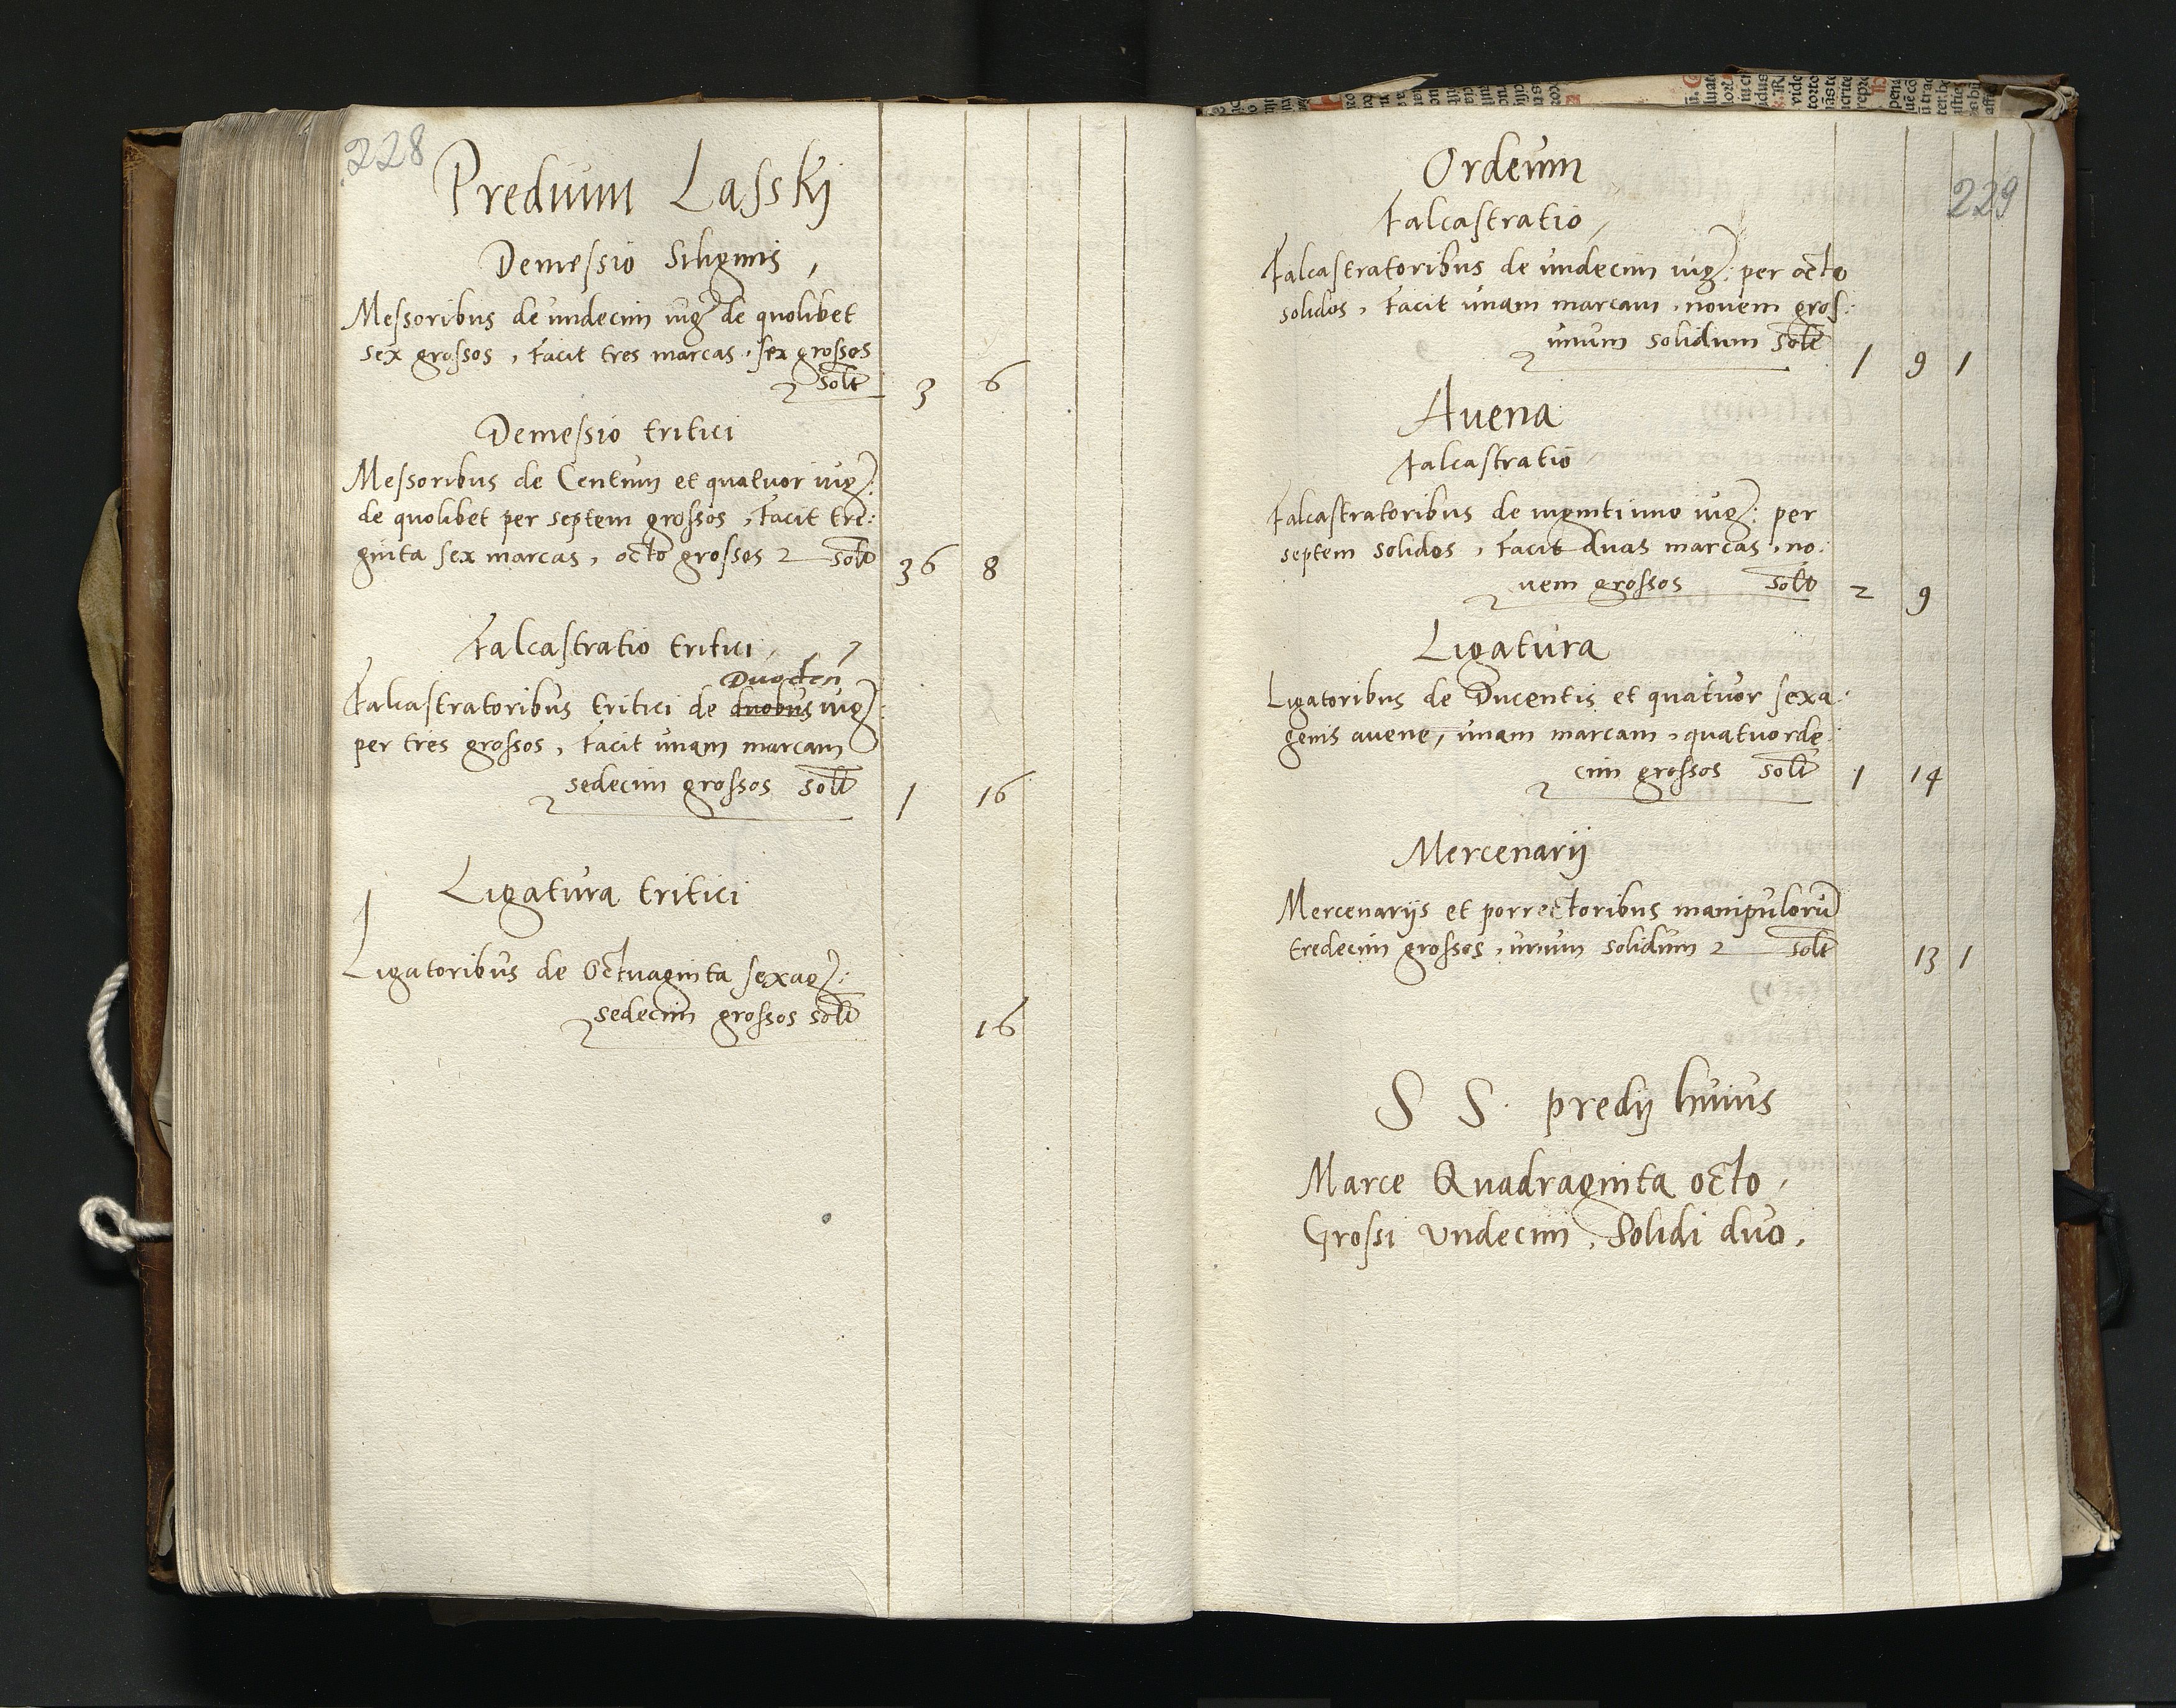 228
Predium Lassky
Demessio Siliginis,
Messoribus de undecim iug: de quolibet
sex grossos, facit tres marcas, sex grossos
solt 3 6
Demessio tritici
Messoribus de Centum et quatuor iug:
de quolibet per septem grossos, facit tri:
ginta sex marcas, octo grossos solt 36 8
Falcastratio tritici,
Duodeci
Falcastratoribus tritici de duobus iug:
per tres grossos, facit unam marcam
sedecim grossos solt 1 16
Ligatura tritici
Ligatoribus de Octuaginta sexag:
sedecim grossos solt 16
229
Ordeum
Falcastratio,
Falcastratoribus de undecim iug: per octo
solidos, facit unam marcam, novem gros:
unum solidum solt 1 9 1
Auena
Falcastratio
Falcastratoribus de viginti uno iug: per
septem solidos, facit duas marcas, no:
uem grossos solt 2 9
Ligatura
Ligatoribus de Ducentis et quatuor sexa:
genis avene, unam marcam, quatuorde:
cim grossos solt 1 14
Mercenarij
Mercenarijs et porrectoribus manipulorū
tredecim grossos, unum solidum solt 13 1
S S. predij huius
Marce Quadraginta octo,
Grossi undecim, Solidi duo.